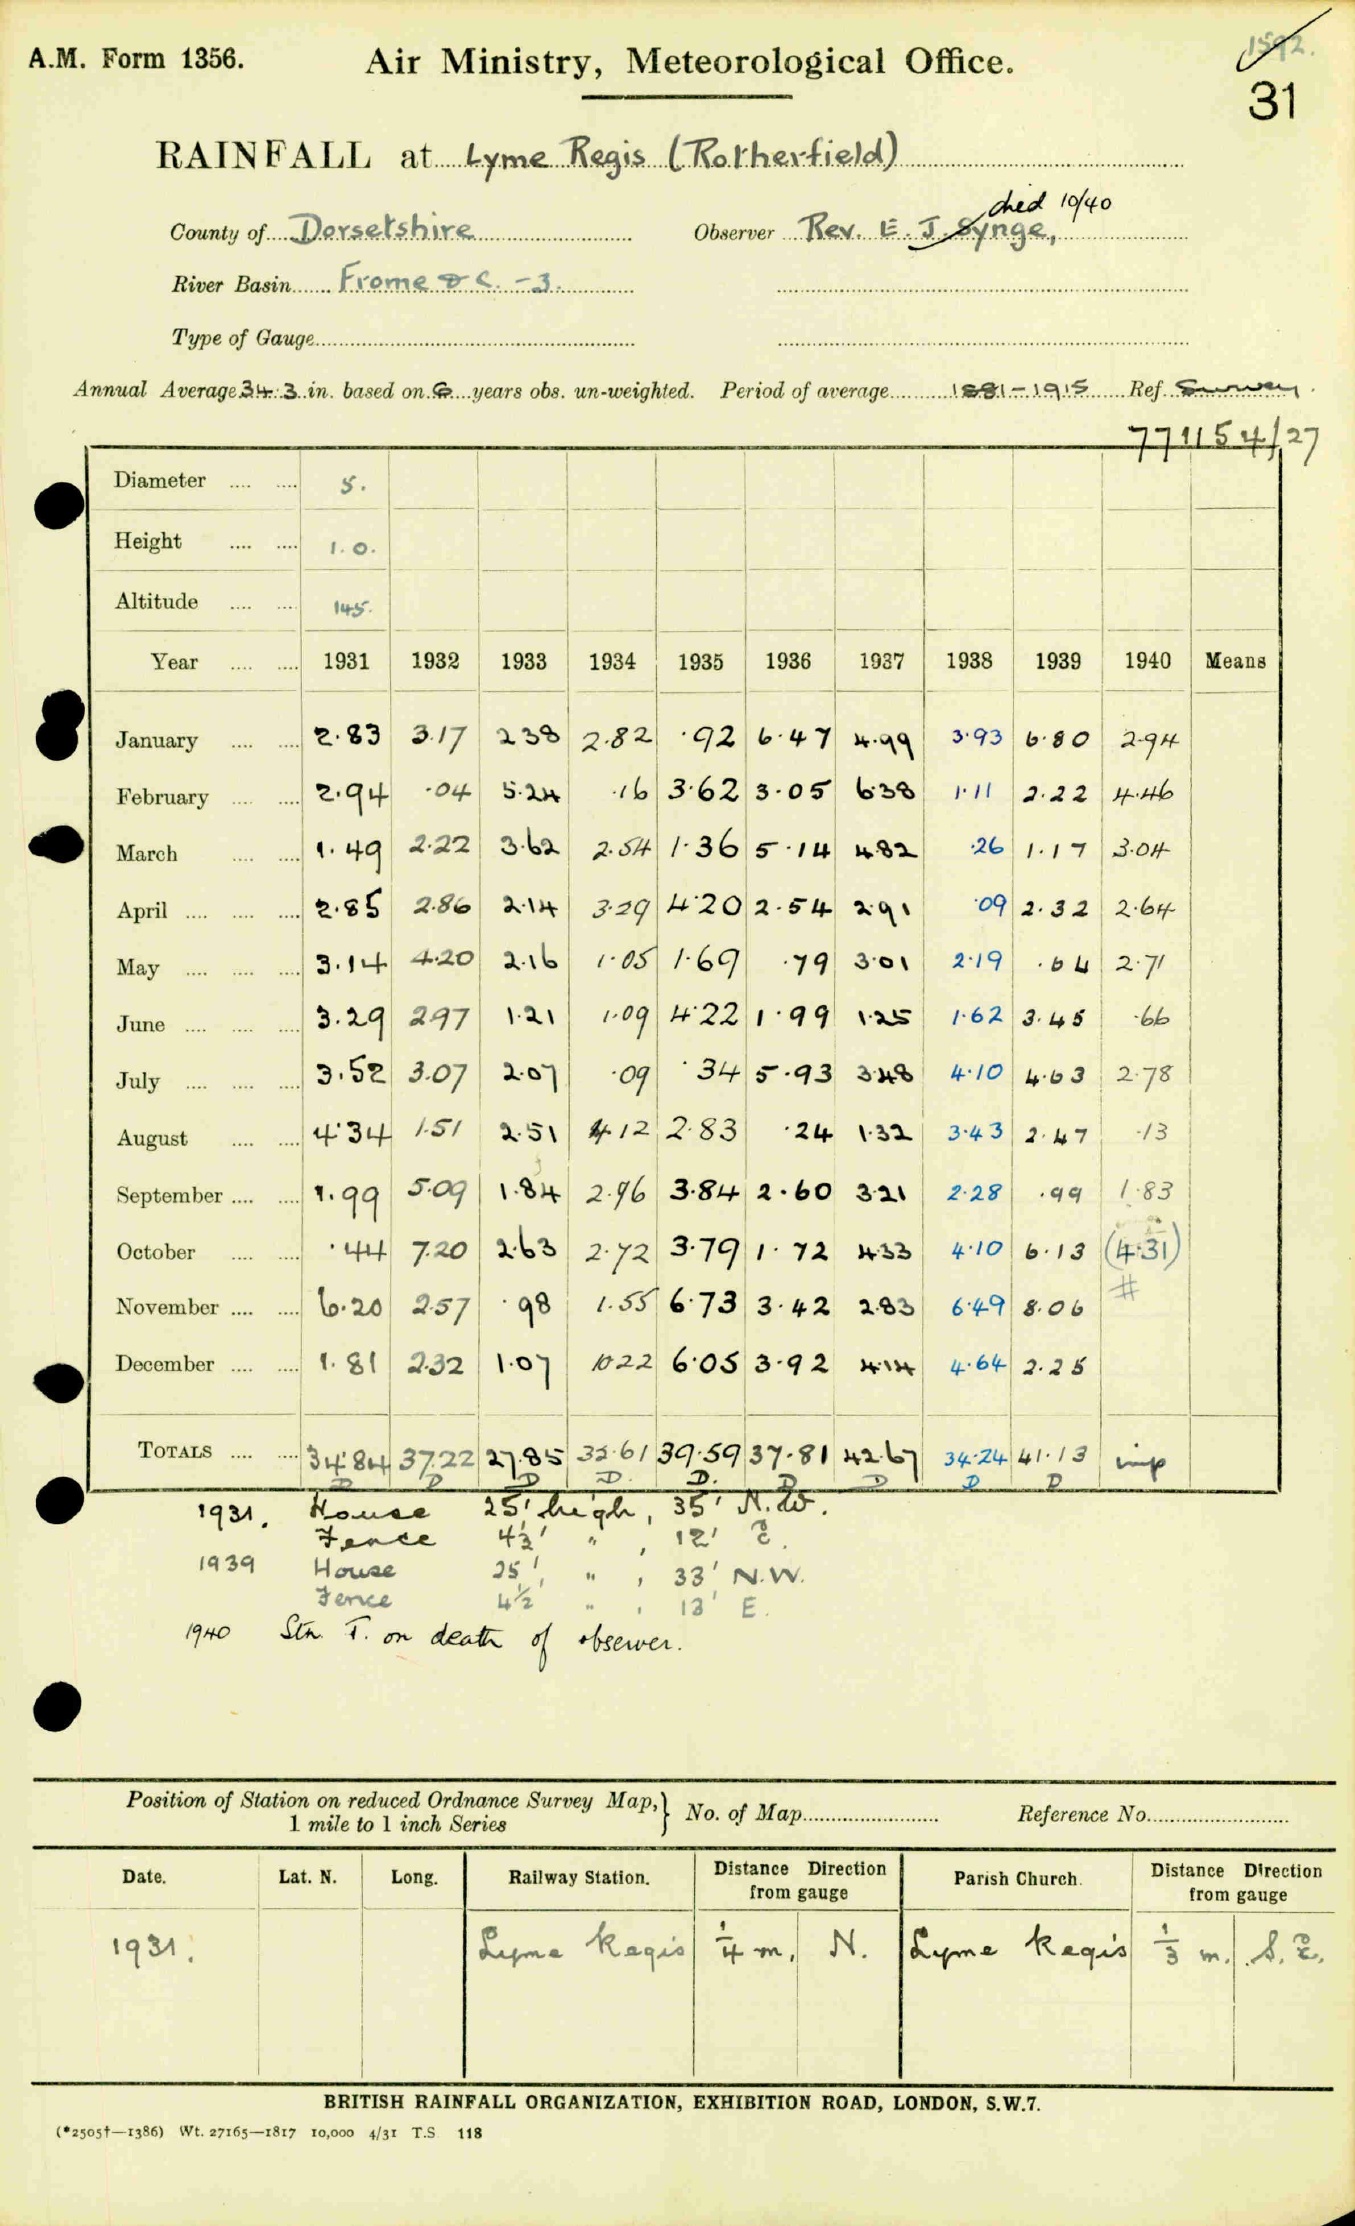 A.M. Form 1356.
Air Ministry, Meteorological Office.
1592.
31
RAINFALL at Lyme Regis (Rotherfield)
died 10/40
County of Dorsetshire Observer Rev. E. J. Synge,
River Basin Frome & c. -3.
Type of Gauge
Annual Average 34.3 in. based on 6 years obs. un-weighted. Period of average 1881-1915 Ref. Survey
771154/27
Diameter 5.
Height 1.0.
Altitude 145.
Year 1931 1932 1933 1934 1935 1936 1937 1938 1939 1940 Means
January 2.83 3.17 2.38 2.82 .92 6.47 4.99 3.93 6.80 2.94
February 2.94 .04 5.24 .16 3.62 3.05 6.38 1.11 2.22 4.46
March 1.49 2.22 3.62 2.54 1.36 5.14 4.82 .26 1.17 3.04
April 2.85 2.86 2.14 3.29 4.20 2.54 2.91 .09 2.32 2.64
May 3.14 4.20 2.16 1.05 1.69 .79 3.01 2.19 .64 2.71
June 3.29 2.97 1.21 1.09 4.22 1.99 1.25 1.62 3.45 .66
July 3.52 3.07 2.07 .09 .34 5.93 3.48 4.10 4.63 2.78
August 4.34 1.51 2.51 4.12 2.83 .24 1.32 3.43 2.47 .13
September 1.99 5.09 1.84 2.96 3.84 2.60 3.21 2.28 .99 1.83
October .44 7.20 2.63 2.72 3.79 1.72 4.33 4.10 6.13 (4.31)
November 6.20 2.57 .98 1.55 6.73 3.42 2.83 6.49 8.06 #
December 1.81 2.32 1.07 10.22 6.05 3.92 4.14 4.64 2.25
TOTALS 34.84 37.22 27.85 32.61 39.59 37.81 42.67 34.24 41.13 imp
D D D D. D. D D D D
1931. House 25' high, 35' N.W.
Fence 4½' " , 12' E.
1939 House 25', " , 33' N.W.
Fence 4½ " , 13' E.
1940 Stn T. on death of observer.
Position of Station on reduced Ordnance Survey Map,
1 mile to 1 inch Series } No. of Map Reference No.
Date. Lat. N. Long. Railway Station. Distance Direction from gauge Parish Church. Distance Direction from gauge
1931. Lyme Regis ¼ m. N. Lyme Regis ⅓ m. S.E.
BRITISH RAINFALL ORGANIZATION, EXHIBITION ROAD, LONDON, S.W.7.
(*2505†—1386) Wt. 27165—1817 10,000 4/31 T.S 118